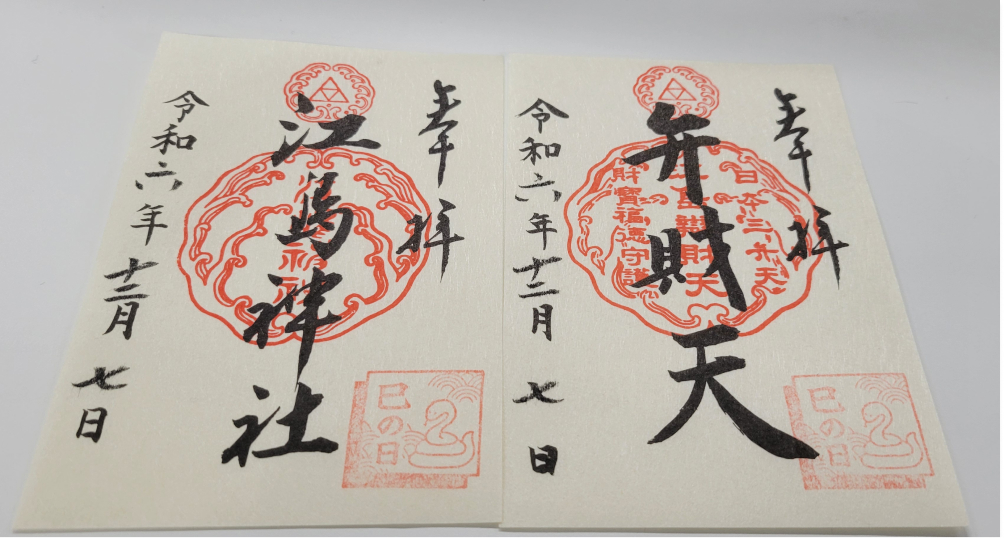 奉拝
江島神社
令和六年十二月七日
巳の日
奉拝
弁財天
日本三弁天
江島辨財天
財寶福徳守護
令和六年十二月七日
巳の日